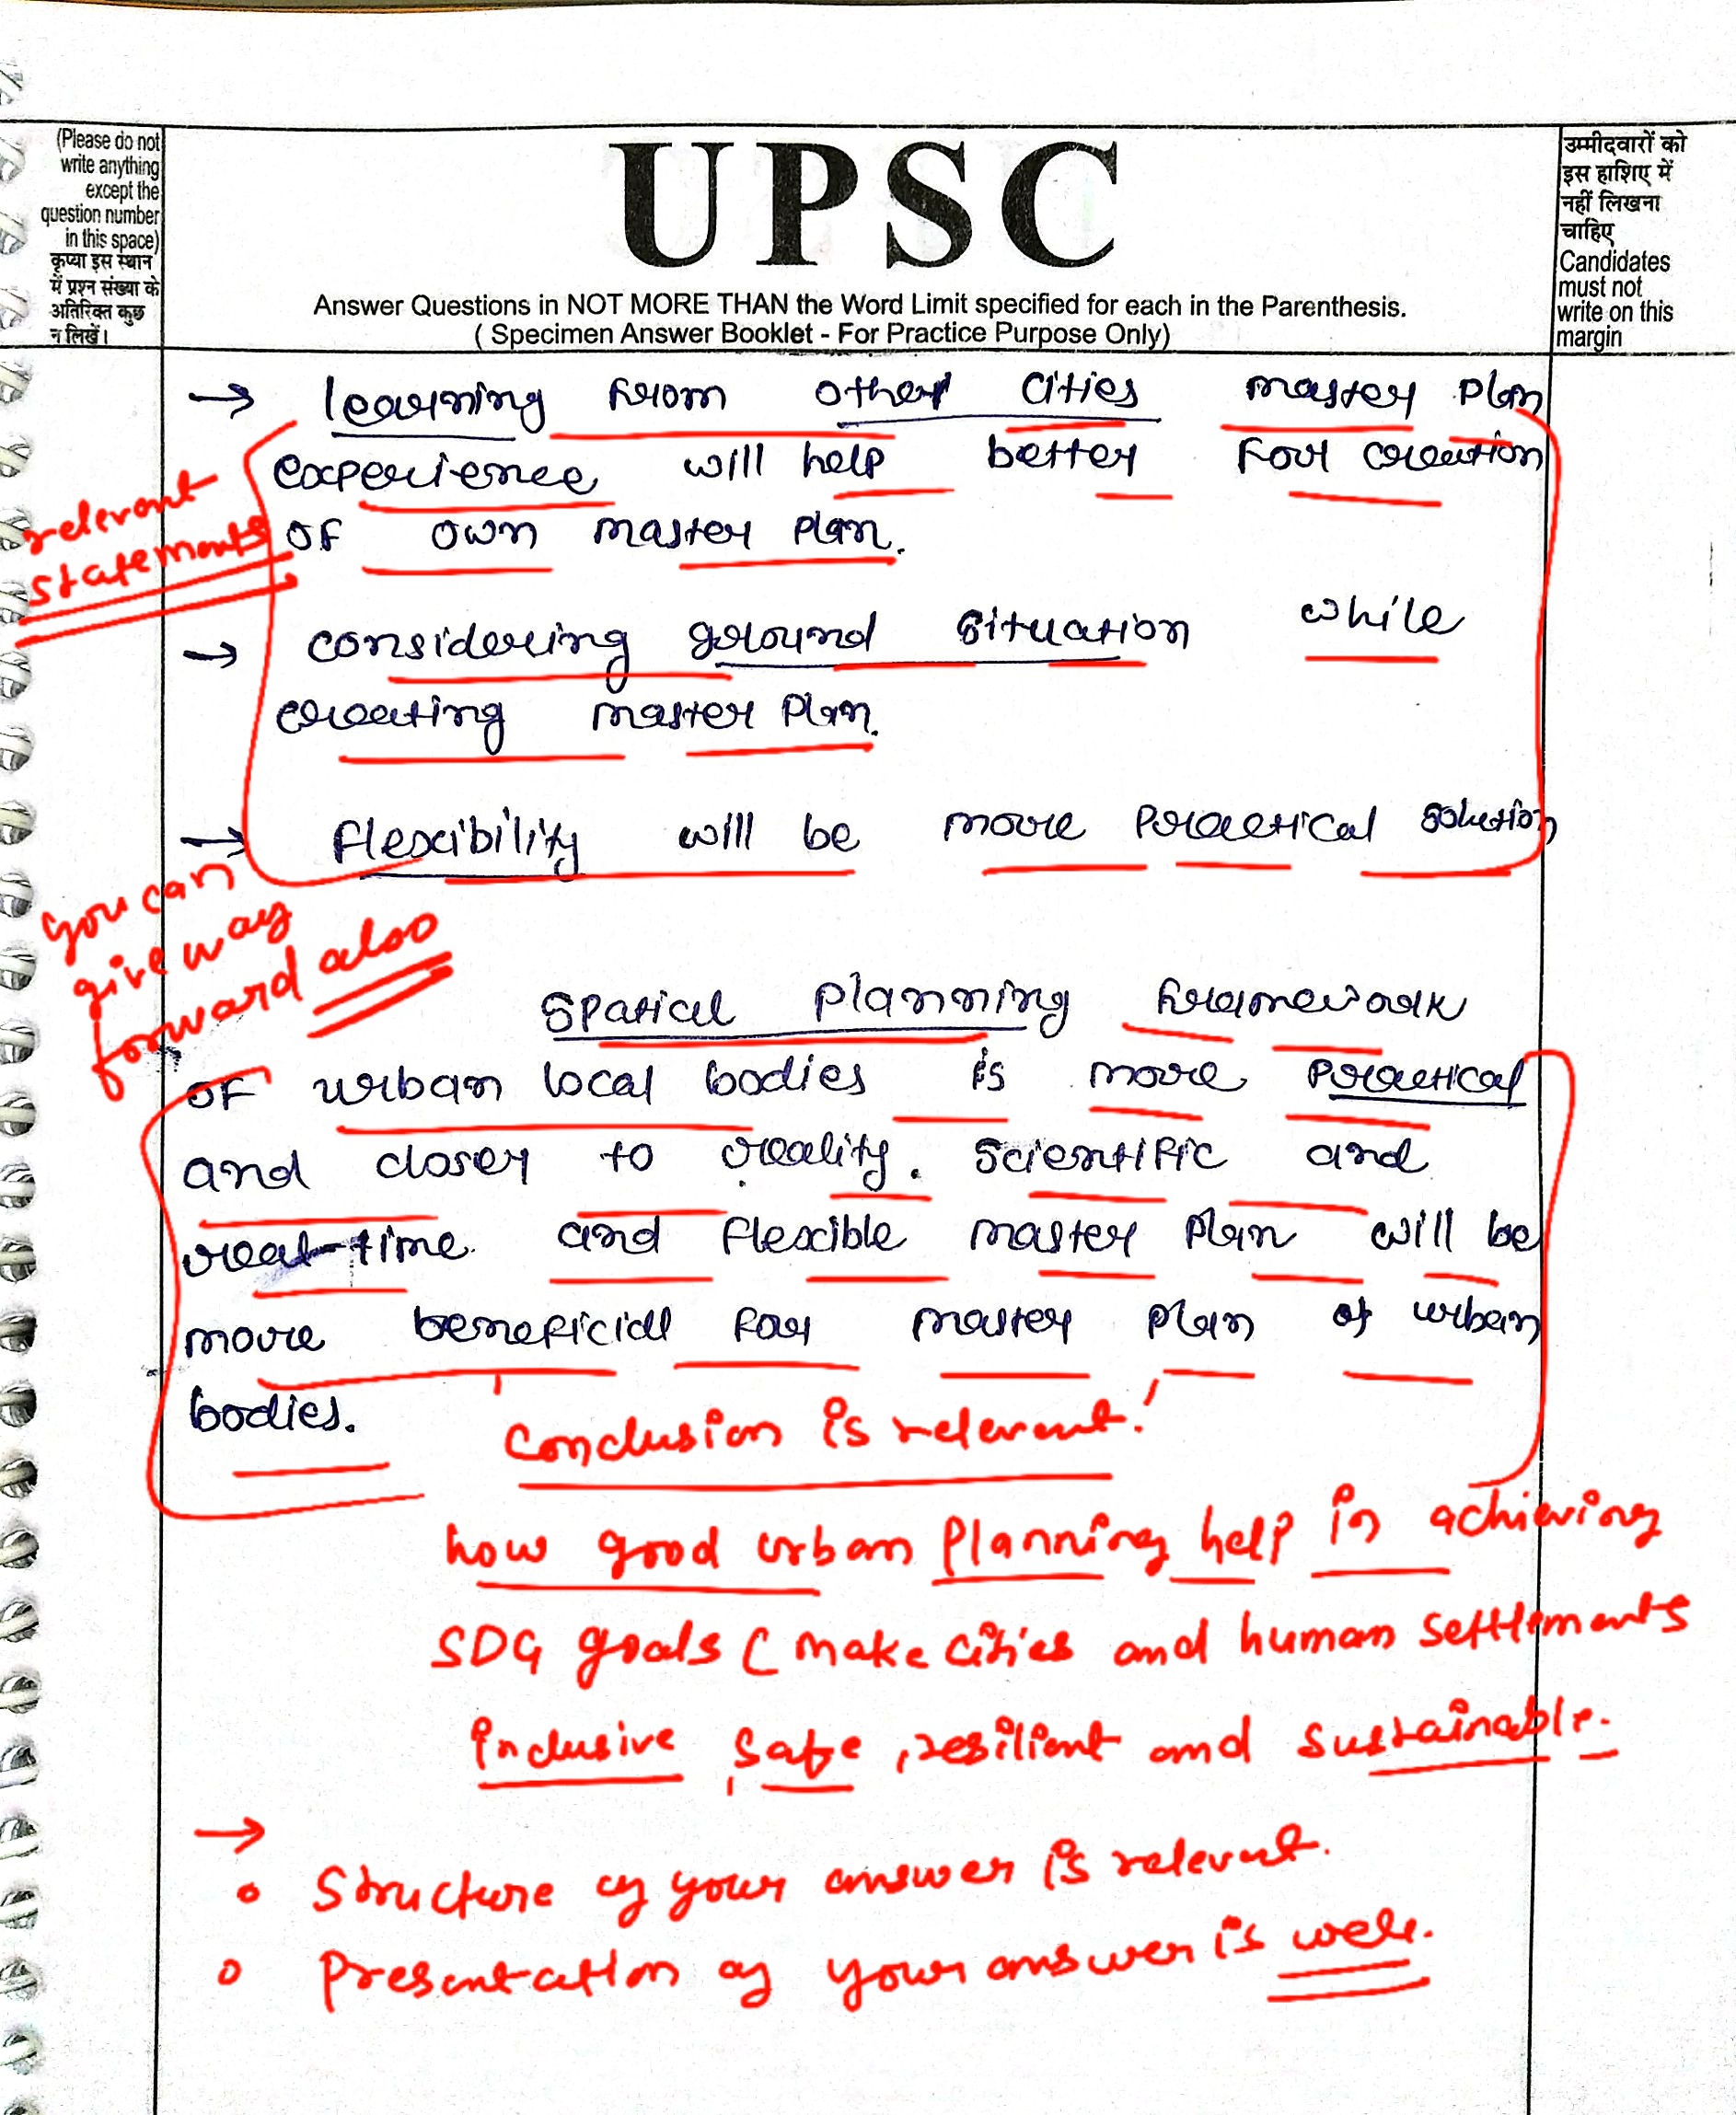 (Please do not
write anything
except the
question number
in this space)
कृप्या इस स्थान
में प्रश्न संख्या के
अतिरिक्त कुछ
न लिखें।
UPSC
Answer Questions in NOT MORE THAN the Word Limit specified for each in the Parenthesis.
( Specimen Answer Booklet - For Practice Purpose Only)
उम्मीदवारों को
इस हाशिए में
नहीं लिखना
चाहिए
Candidates
must not
write on this
margin
→ learning from other cities master plan
experience will help better for creation
of own master plan.
relevant
statements
→ considering ground situation while
creating master plan.
→ flexibility will be more practical solution
you can
give way
forward also
Spatial planning framework
of urban local bodies is more practical
and closer to reality. Scientific and
real-time and flexible master plan will be
more beneficial for master plan of urban
bodies.
Conclusion is relevant!
how good urban planning help in achieving
SDG goals ( make cities and human settlements
inclusive, safe, resilient and sustainable.
→
• Structure of your answer is relevant.
• Presentation of your answer is well.